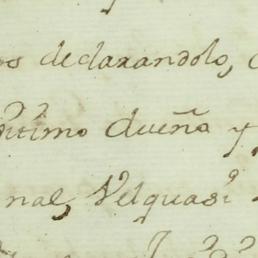 os declarandolo,
itimo dueño y
nal, Velquasi